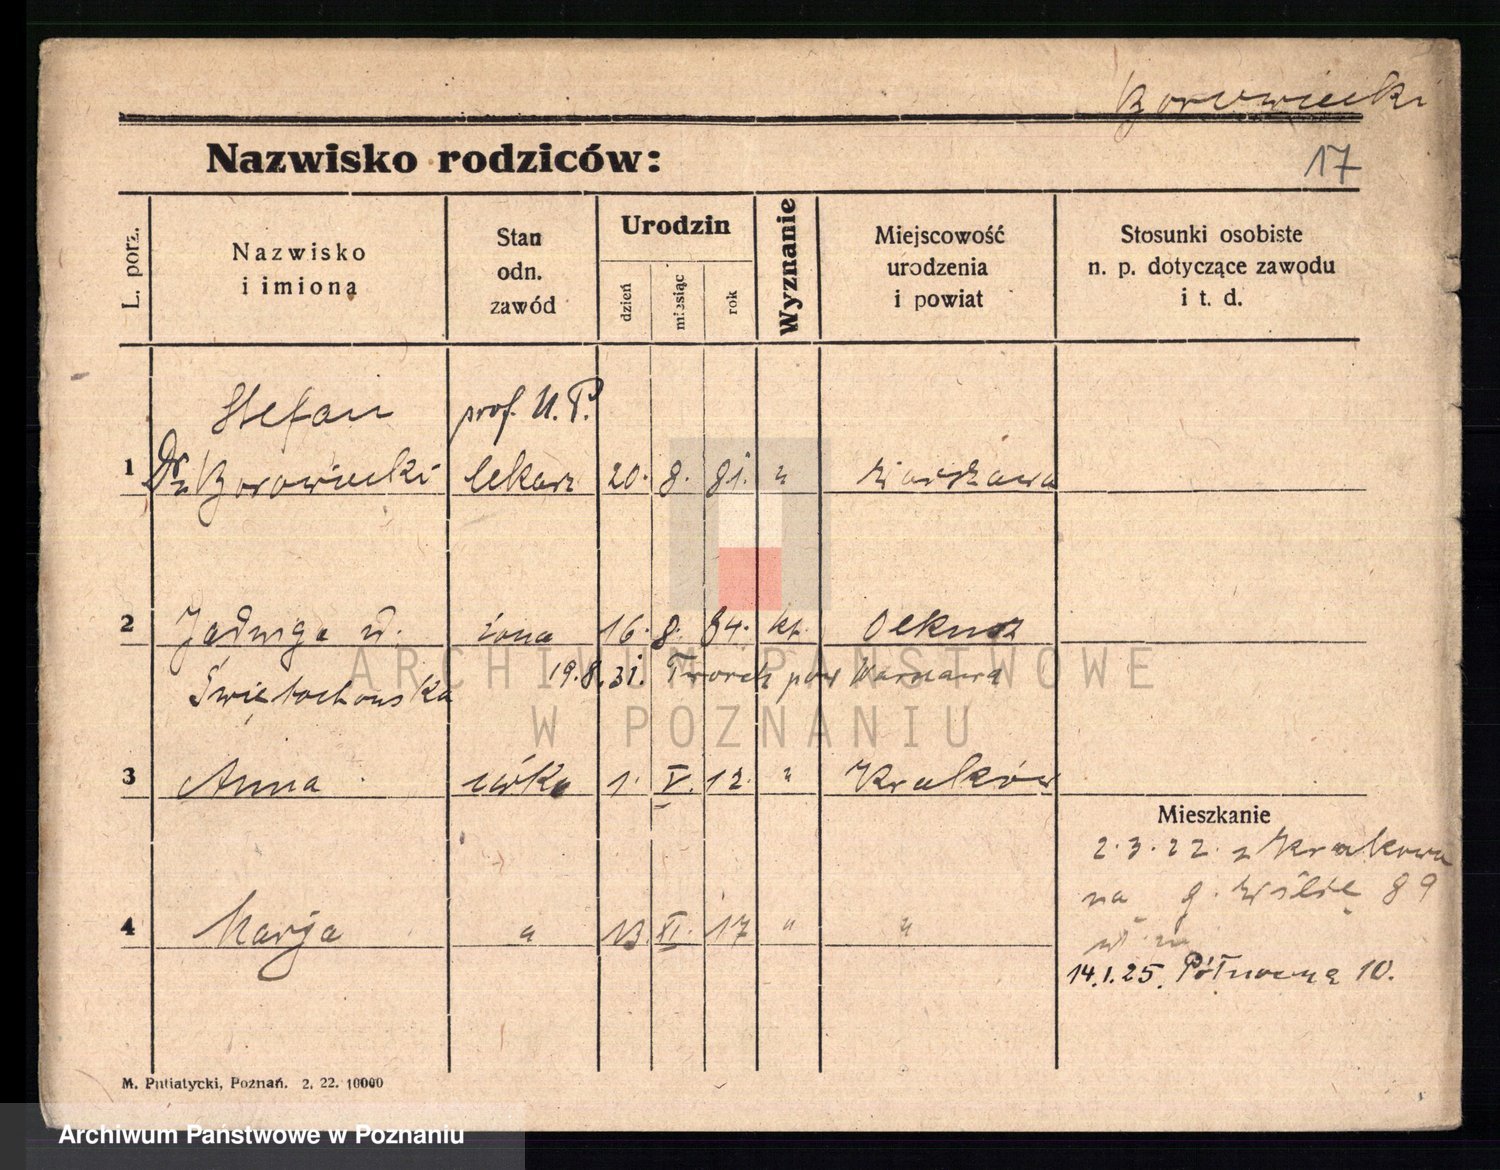 Borowiecki
17
Nazwisko rodziców:
L. porz.
Nazwisko
i imiona
Stan
odn.
zawód
Urodzin
dzień
miesiąc
rok
Wyznanie
Miejscowość
urodzenia
i powiat
Stosunki osobiste
n. p. dotyczące zawodu
i t. d.
Stefan prof. U. P.
1 Dr Borowiecki lekarz 20. 8. 81. " Warszawa
2 Jadwiga żona 16. 8. 84. kt. Olkusz
Świętochowska 19.8.31. Tworki pow Warszawa
3 Anna córka 1. V. 12. " Kraków
Mieszkanie
2.3.22 z Krakowa
na g. Wilde 89
4 Marja " 13 XI. 17 " "
14.1.25. Północną 10.
M. Putiatycki, Poznań. 2. 22. 10000
ARCHIWUM PAŃSTWOWE
W POZNANIU
Archiwum Państwowe w Poznaniu